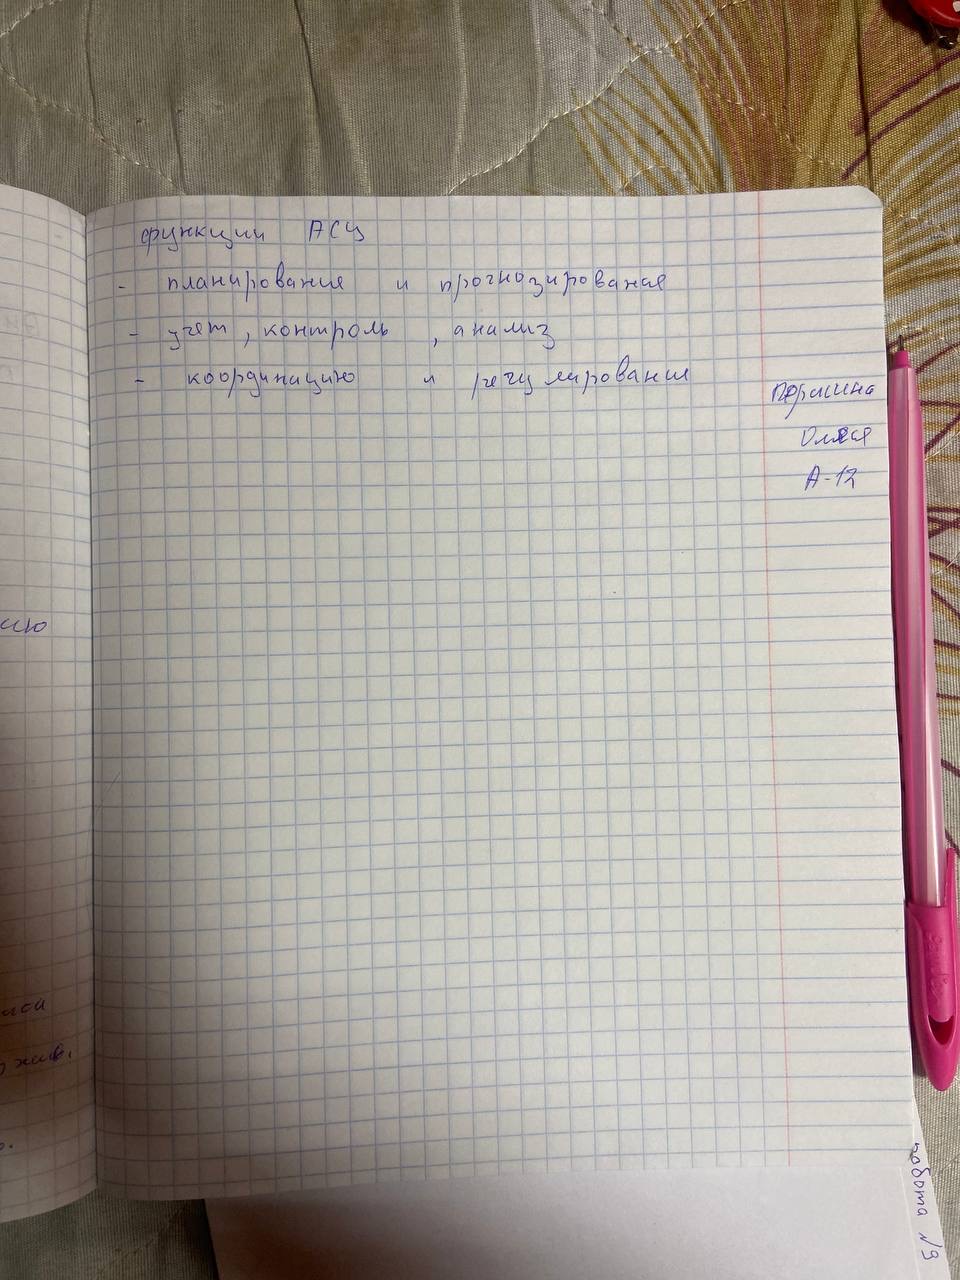 функции АСУ
- планирование и прогнозирование
- учет, контроль, анализ
- координацию и регулирование
Олеся
А-12
сию
жив.
работа №9